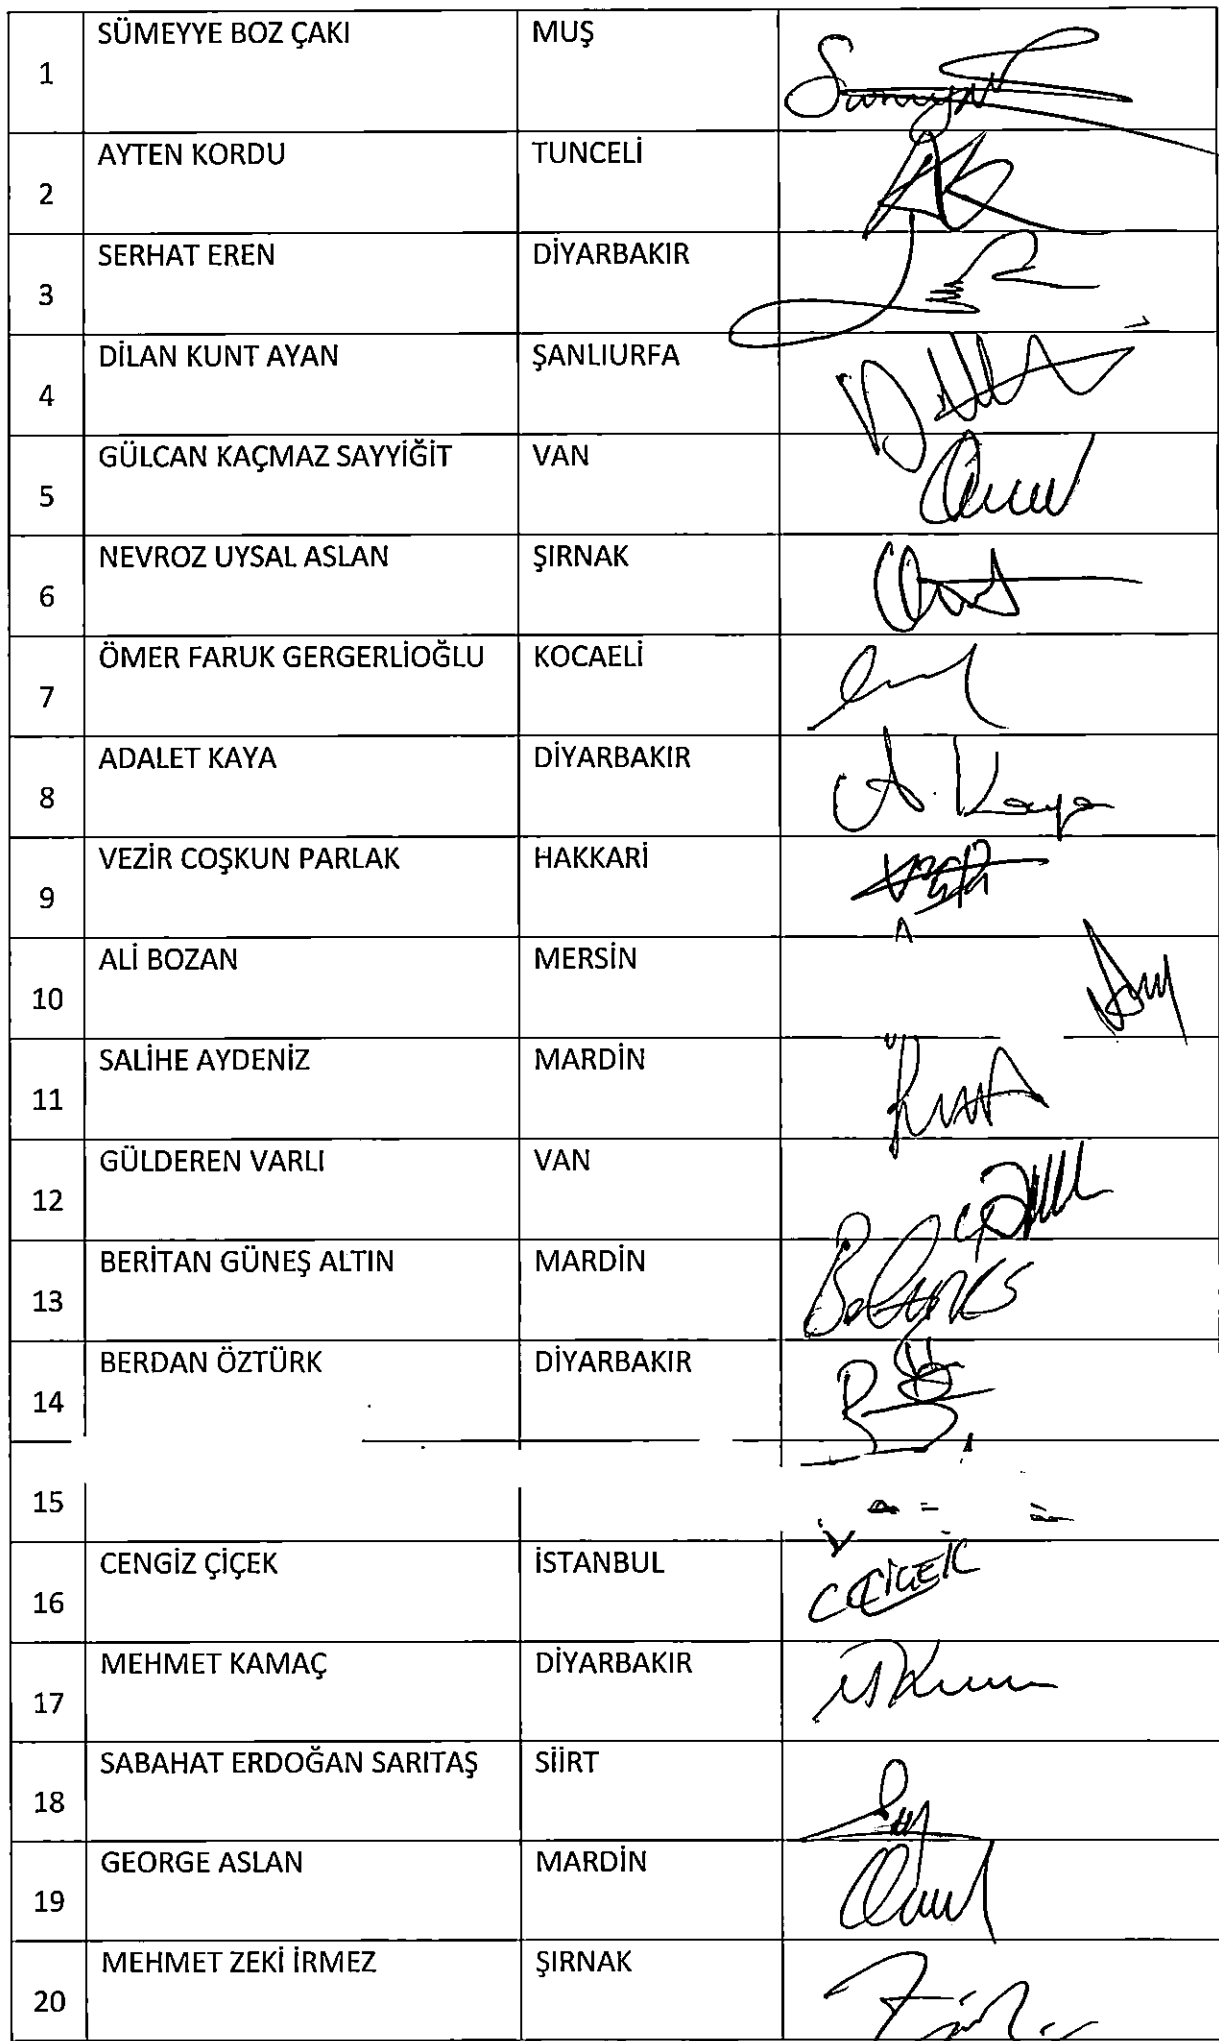 1 SÜMEYYE BOZ ÇAKI MUŞ
2 AYTEN KORDU TUNCELİ
3 SERHAT EREN DİYARBAKIR
4 DİLAN KUNT AYAN ŞANLIURFA
5 GÜLCAN KAÇMAZ SAYYİĞİT VAN
6 NEVROZ UYSAL ASLAN ŞIRNAK
7 ÖMER FARUK GERGERLİOĞLU KOCAELİ
8 ADALET KAYA DİYARBAKIR A. Kaya
9 VEZİR COŞKUN PARLAK HAKKARİ
10 ALİ BOZAN MERSİN
11 SALİHE AYDENİZ MARDİN
12 GÜLDEREN VARLI VAN
13 BERİTAN GÜNEŞ ALTIN MARDİN
14 BERDAN ÖZTÜRK DİYARBAKIR
15
16 CENGİZ ÇİÇEK İSTANBUL C ÇİÇEK
17 MEHMET KAMAÇ DİYARBAKIR
18 SABAHAT ERDOĞAN SARITAŞ SİİRT
19 GEORGE ASLAN MARDİN
20 MEHMET ZEKİ İRMEZ ŞIRNAK